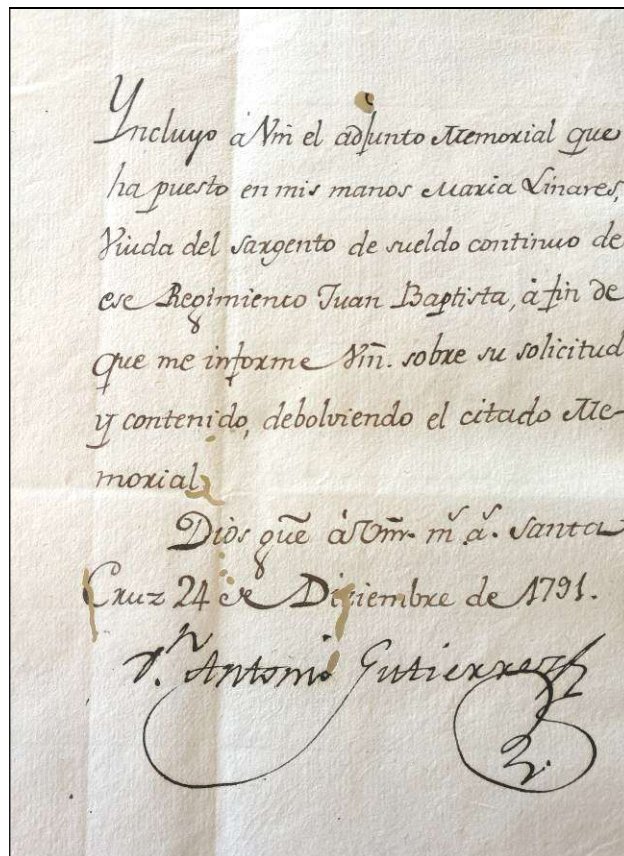 Yncluyo â Vm̃ el adjunto Memorial que
ha puesto en mis manos Maria Linares,
Viuda del sargento de sueldo continuo de
ese Regimiento Juan Baptista, â fin de
que me informe Vm̃. sobre su solicitud
y contenido, debolviendo el citado Me-
morial.
Dios gũe â Vm̃. mˢ. aˢ. Santa
Cruz 24 de Diziembre de 1791.
Dⁿ. Antonio Gutierrez